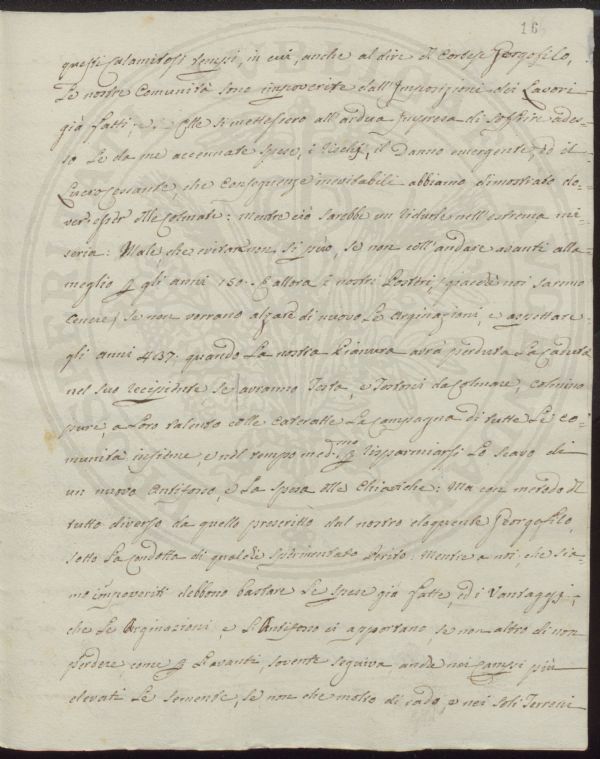 16
questi calamitosi tempi, in cui, anche al dire del cortese Georgofilo,
Le nostre Comunità sono impoverite dall'Imposizione dei Lavori
già fatti; e se Elle si mettessero all'ardua Impresa di soffrire ades-
so le da me accennate spese, i rischj, il Danno emergente, ed il
Lucro cessante, che conseguenze inevitabili abbiamo dimostrato do-
ver esser delle Colmate: mentre ciò sarebbe un ridurle nell'estrema mi-
seria: Male che evitar non si può, se non coll'andare avanti alla
meglio p gli anni 150. E allora i nostri Posteri, giacchè noi saremo
Cenere, se non vorranno alzare di nuovo Le Arginazioni, e aspettare
gli anni 4137. quando La nostra Pianura avrà perduta La Caduta
nel suo recipiente se avranno Testa, e Tortoni da Colmare, colmino
pure, a Loro talento colle Cateratte La Campagna di tutte Le Co-
munità insieme, e nel tempo med.mo p risparmiarsi Lo scavo di
un nuovo Antifosso, e La spesa delle Chiaviche: Ma con metodo del
tutto diverso da quello prescritto dal nostro eloquente Georgofilo,
sotto La Condotta di qualche sperimentato Perito: Mentre a noi, che sia-
mo impoveriti debbono bastare Le spese già fatte, ed i Vantaggj,
che Le Arginazioni, e L'Antifosso ci apportano, se non altro di non
perdere, come p L'avanti, sovente seguiva anche nei Campi più
elevati Le semente, se non che molto di rado, e nei soli Terreni